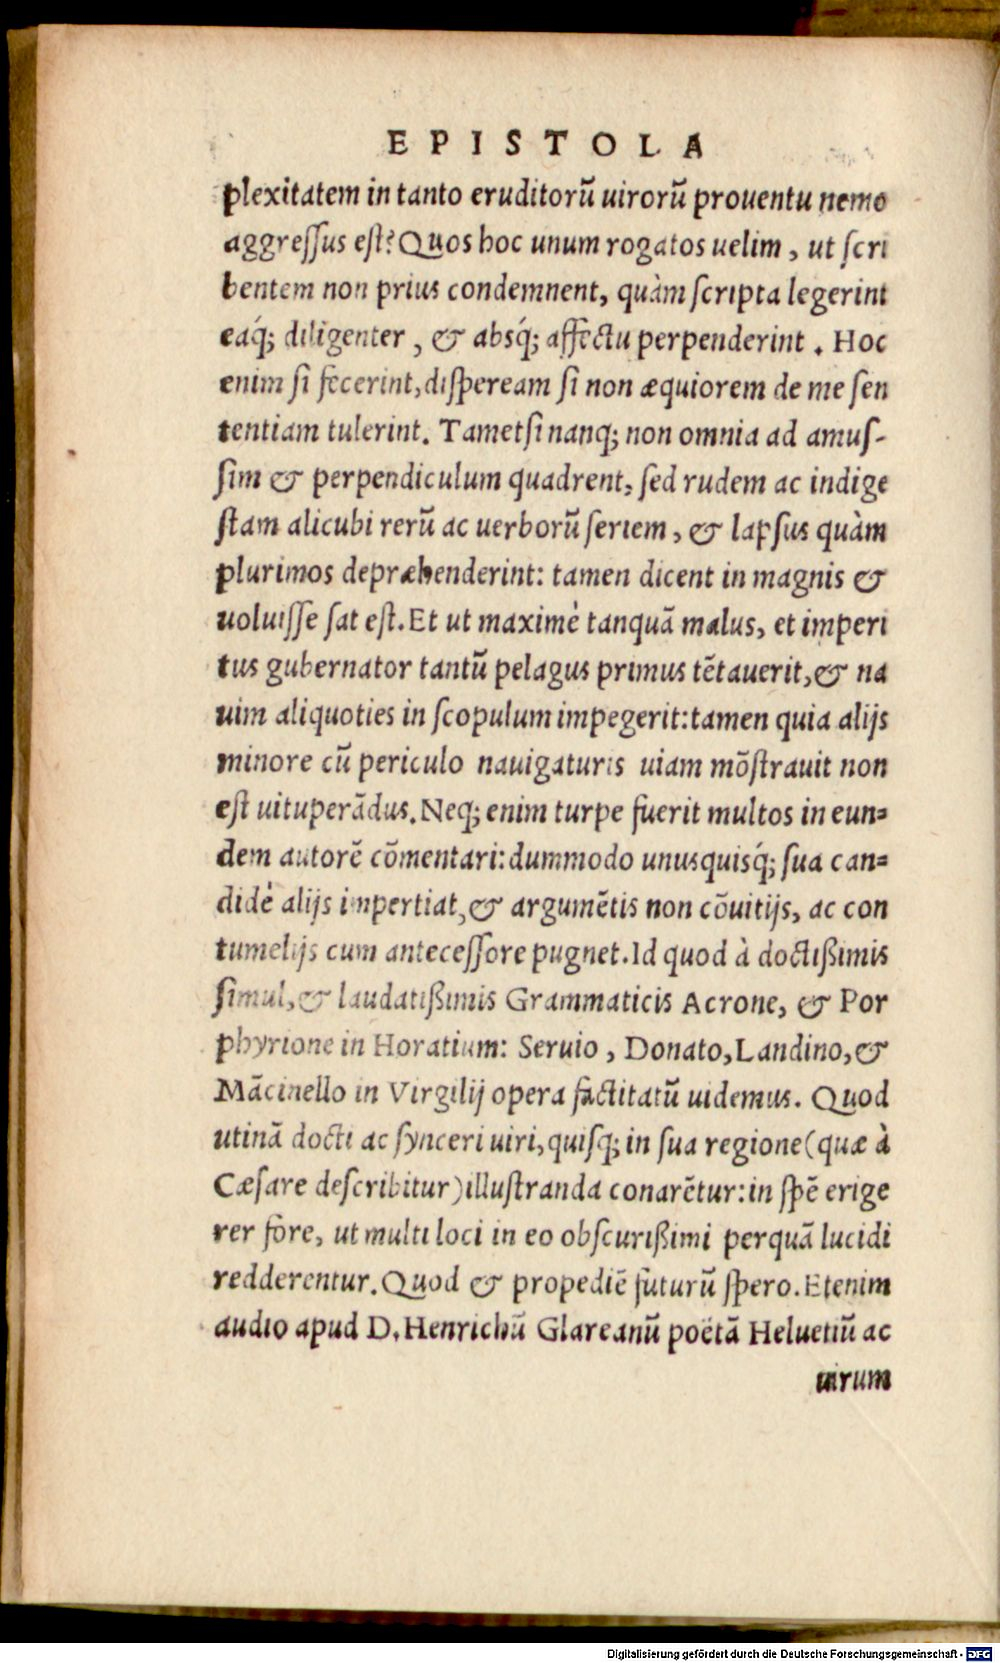 EPISTOLA
plexitatem in tanto eruditorũ uirorũ prouentu nemo
aggreſſus eſt? Quos hoc unum rogatos uelim, ut ſcri
bentem non prius condemnent, quàm ſcripta legerint
eaq́; diligenter, & absq́; affectu perpenderint. Hoc
enim ſi fecerint, diſpeream ſi non æquiorem de me ſen
tentiam tulerint. Tametſi nanq; non omnia ad amuſ-
ſim & perpendiculum quadrent, ſed rudem ac indige
ſtam alicubi rerũ ac uerborũ ſeriem, & lapſus quàm
plurimos depræhenderint: tamen dicent in magnis &
uoluiſſe ſat eſt. Et ut maximè tanquã malus, et imperi
tus gubernator tantũ pelagus primus tẽtauerit, & na
uim aliquoties in ſcopulum impegerit: tamen quia alijs
minore cũ periculo nauigaturis uiam mõſtrauit non
eſt uituperãdus. Neq; enim turpe fuerit multos in eun-
dem autorẽ cõmentari: dummodo unusquisq́; ſua can-
didè alijs impertiat, & argumẽtis non cõuitijs, ac con
tumelijs cum anteceſſore pugnet. Id quod à doctißimis
ſimul, & laudatißimis Grammaticis Acrone, & Por
phyrione in Horatium: Seruio, Donato, Landino, &
Mãcinello in Virgilij opera factitatũ uidemus. Quod
utinã docti ac ſynceri uiri, quiſq; in ſua regione (quæ à
Cæſare deſcribitur) illuſtranda conarẽtur: in ſpẽ erige
rer fore, ut multi loci in eo obſcurißimi perquã lucidi
redderentur. Quod & propediẽ futurũ ſpero. Etenim
audio apud D. Henrichũ Glareanũ poëtã Heluetiũ ac
uirum
Digitalisierung gefördert durch die Deutsche Forschungsgemeinschaft - DFG